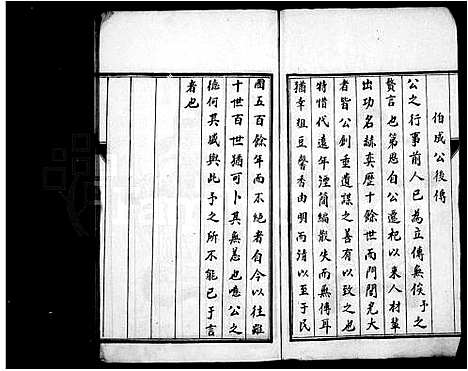 伯成公後傳
公之行事前人已為立傳無俟予之
贅言也第思自公遷祀以來人材輩
出功名赫奕歷十餘世而門閭光大
者皆公創垂遺謀之善有以致之也
特惜代遠年湮簡編散失而無傳耳
猶幸俎豆馨香由明而清以至于民
國五百餘年而不絕者自今以往雖
十世百世猶可卜其無恙也噫公之
德何其盛與此予之所不能已于言
者也